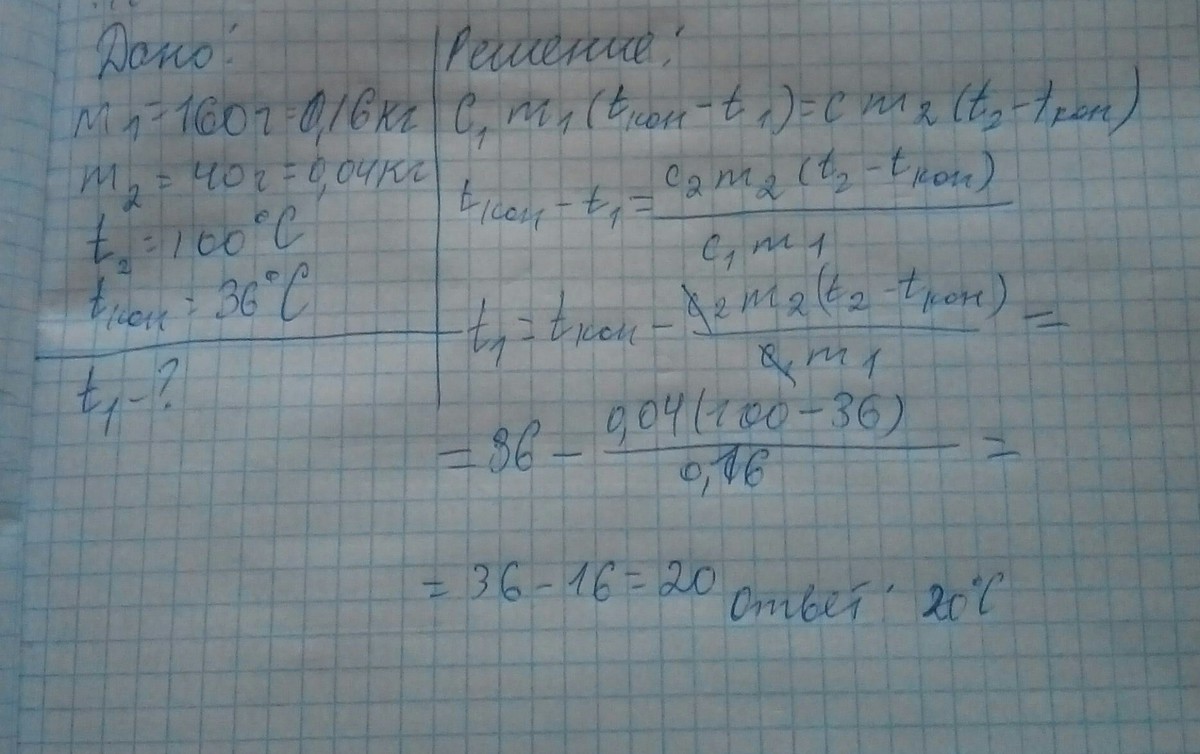 Дано:
m1=160г=0,16кг
m2=40г=0,04кг
t2=100°C
tкон=36°C
t1-?
Решение:
C1 m1(tкон-t1)=c m2(t2-tкон)
tкон-t1=c2m2(t2-tкон)
c1m1
t1=tкон-c2m2(t2-tкон)=
c1m1
=36-0,04(100-36)=
0,16
=36-16=20 Ответ: 20°C